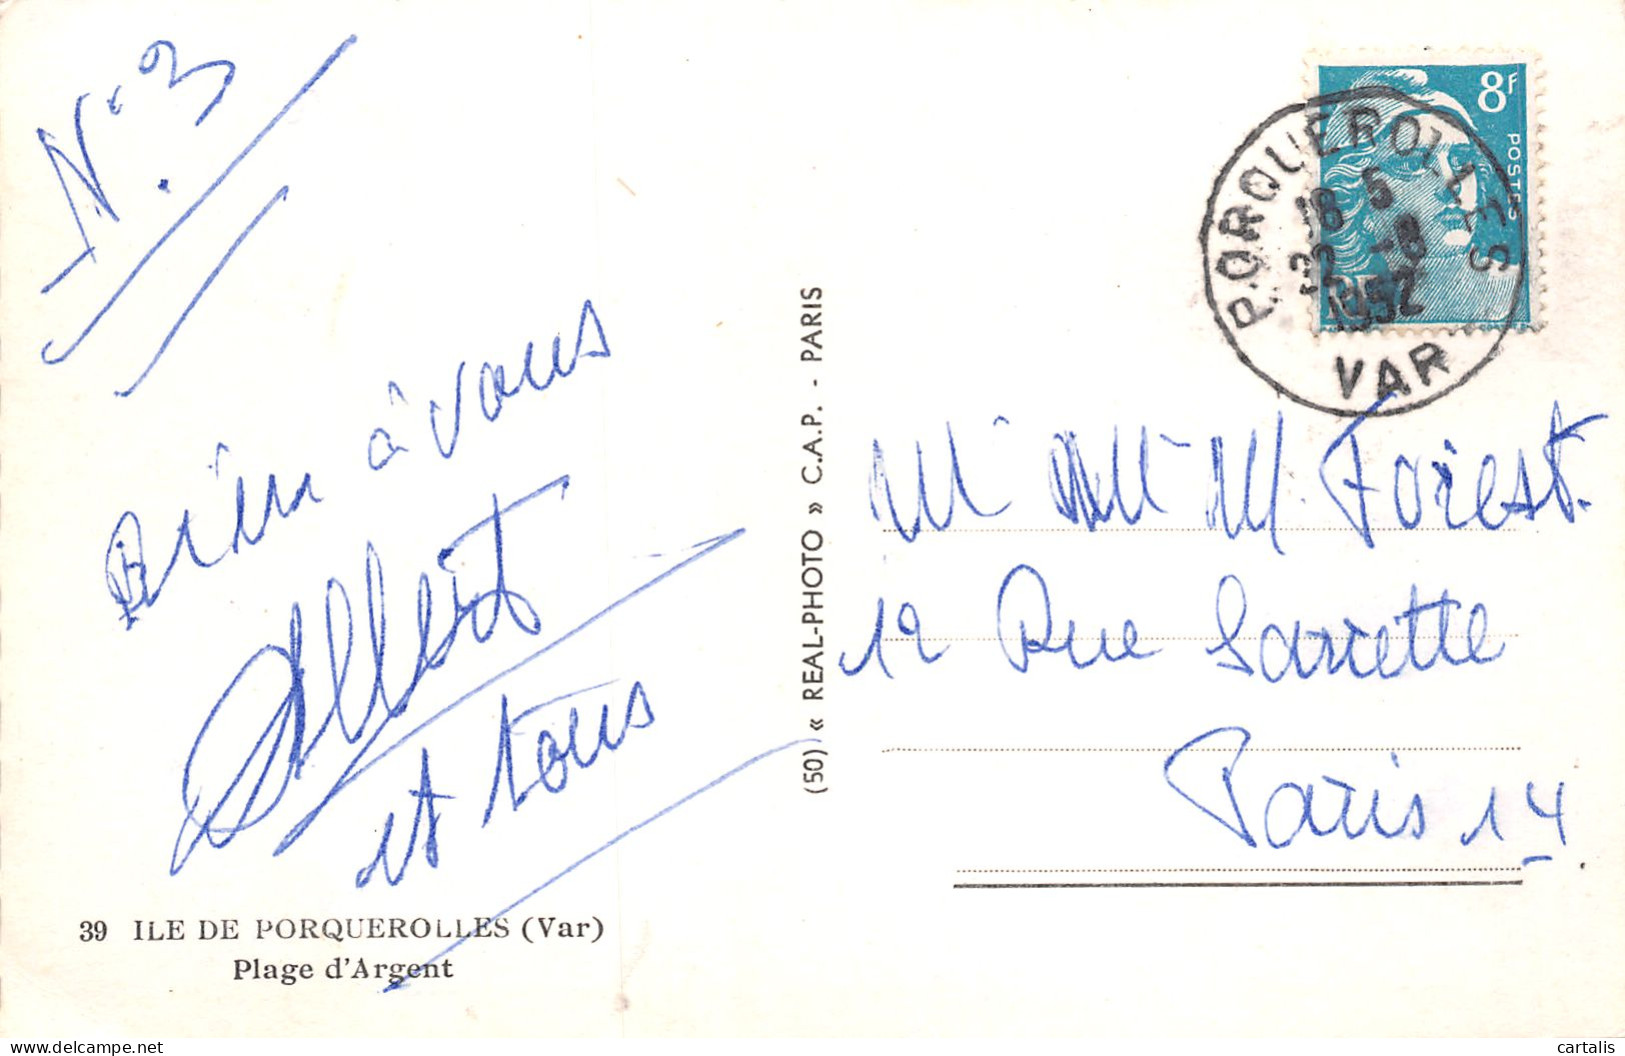 N° 3
Bien à vous
Albert
et tous
39 ILE DE PORQUEROLLES (Var)
Plage d'Argent
(50) « REAL-PHOTO » C.A.P. - PARIS
8F
POSTES
PORQUEROLLES
18 5
22 -8
1952
VAR
M Forest.
12 Rue Sarrette
Paris 14
cartalis
delcampe.net